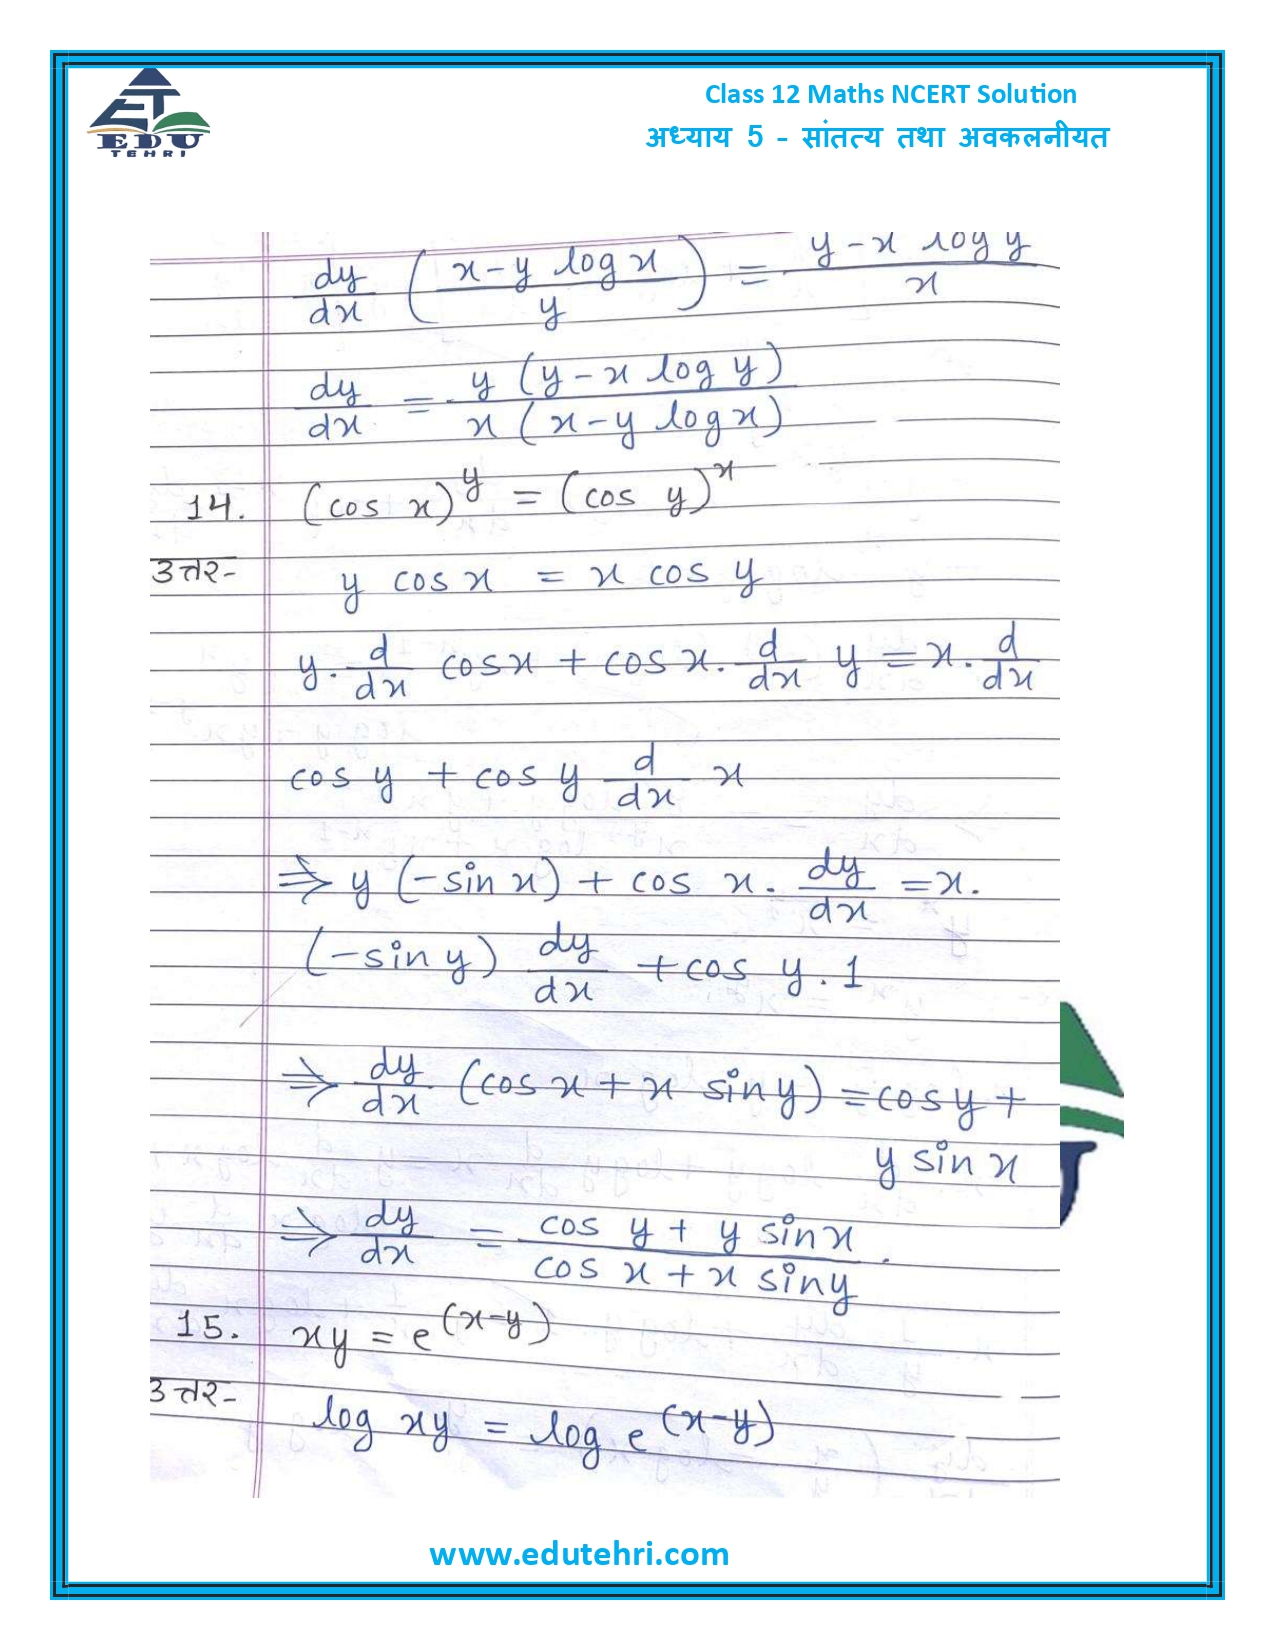 EDU
TEHRI
Class 12 Maths NCERT Solution
अध्याय 5 - सांतत्य तथा अवकलनीयत
dy/dx ( (x-y log x)/y ) = (y-x log y)/x
dy/dx = y (y-x log y) / x (x-y log x)
14. (cos x)^y = (cos y)^x
उत्तर- y cos x = x cos y
y. d/dx cos x + cos x. d/dx y = x. d/dx
cos y + cos y d/dx x
⇒ y (-sin x) + cos x. dy/dx = x.
(-sin y) dy/dx + cos y . 1
⇒ dy/dx (cos x + x sin y) = cos y +
y sin x
⇒ dy/dx = (cos y + y sin x)/(cos x + x sin y) .
15. xy = e^(x-y)
उत्तर- log xy = log e^(x-y)
www.edutehri.com